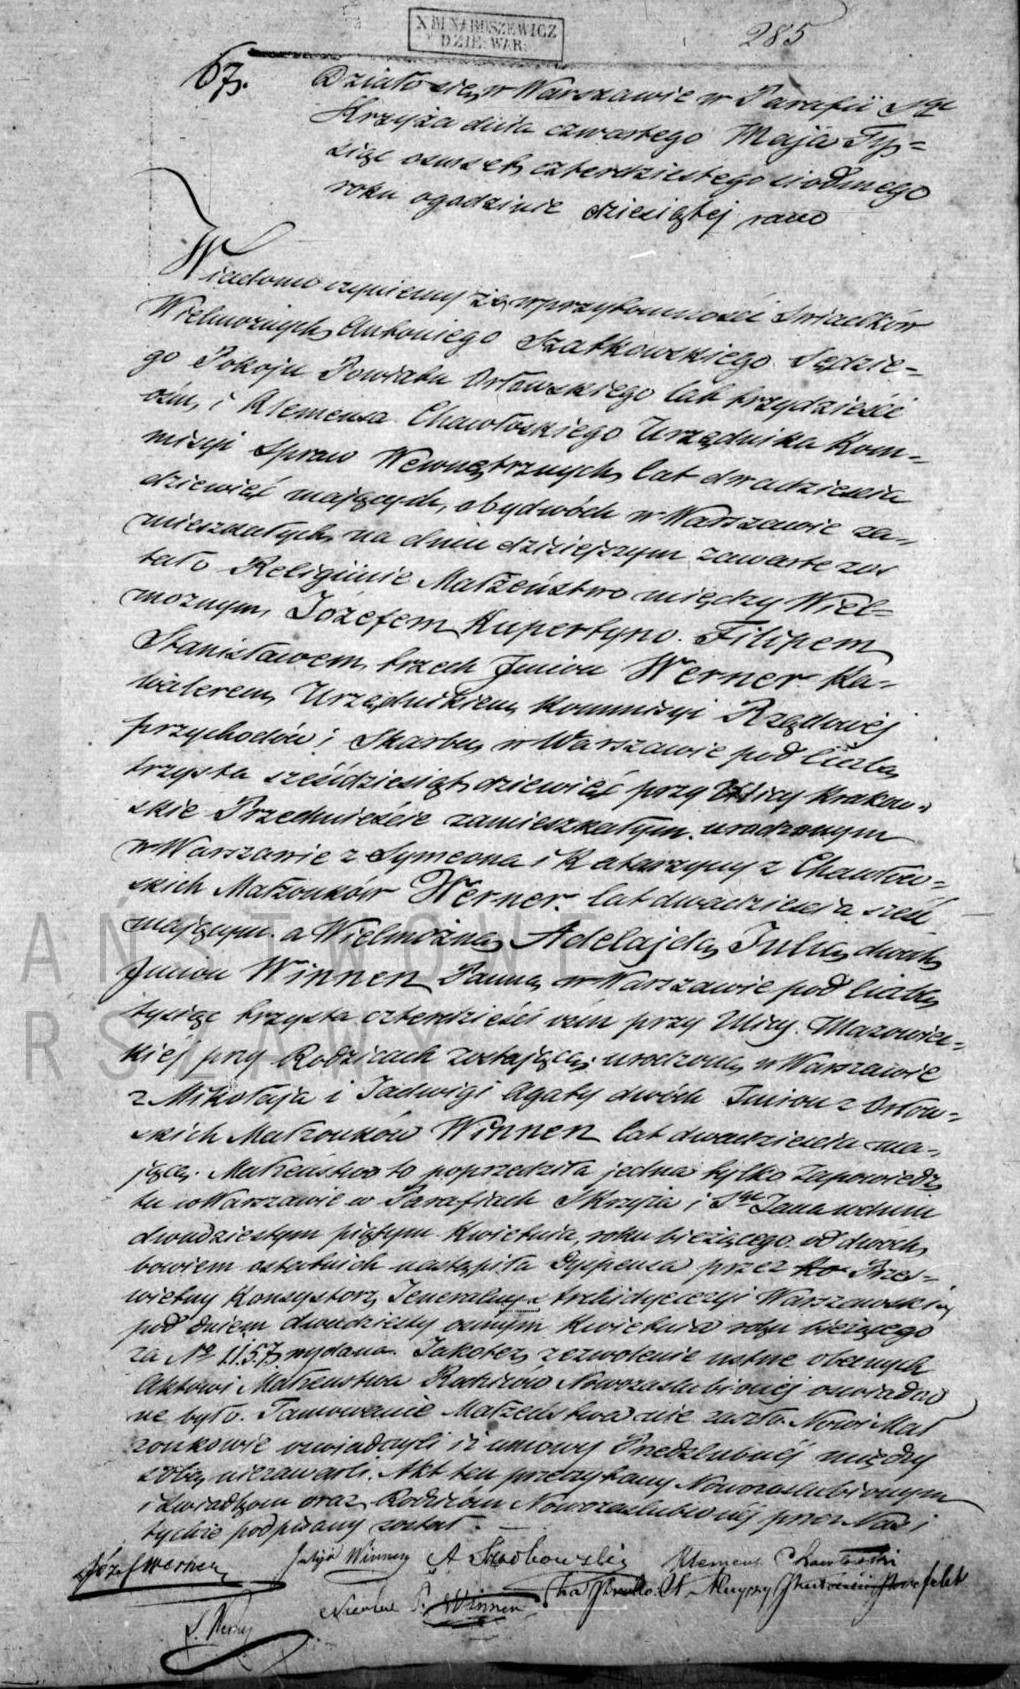 X DI NARUSZEWICZ
DZIE. WAR.
285
67.
Działo się w Warszawie w Parafii Sgo
Krzyża dnia czwartego Maja Ty=
siąc osmset czterdziestego siodmego
roku ogodzinie dziesiątej rano
Wiadomo czyniemy że wprzytomności Swiadków
Wielmożnych Antoniego Szatkowskiego Sędzie=
go Pokoju Powiatu Orłowskiego lat trzydzieście
ośm, i Klemensa Chawłoskiego Urzędnika Kom=
missyi Spraw Wewnętrznych lat dwadzieścia
dziewięć mających, obydwóch w Warszawie za=
mieszkałych, na dniu dzisiejszym zawarte zos
tało Religijnie Małżeństwo między Wiel=
możnym, Józefem Kupertyno Filipem
Stanisławem trzech Imion Werner Ka=
walerem, Urzędnikiem Kommissyi Rządowej
przychodów i Skarbu, w Warszawie pod liczbą
trzysta sześćdziesiąt dziewięć przy Ulicy Krakow=
skie Przedmieście zamieszkałym, urodzonym
w Warszawie z Symeona i Katarzyny z Chawłow=
skich Małżonków Werner, lat dwadzieścia sześć
mającym, a Wielmożną Adelajdą Julią dwoch
Imion Winnen Panną, w Warszawie pod liczbą
tysiąc trzysta czterdzieści ośm przy Ulicy Mazowiec=
kiej przy Rodzicach zostającą, urodzoną w Warszawie
z Mikołaja i Jadwigi Agaty dwóch Imion z Orłow=
skich Małżonków Winnen lat dwadzieścia ma=
jącą. Małżeństwo to poprzedziła jedna tylko Zapowiedź
tu w Warszawie w Parafjach S Krzyża i Sgo Jana w dniu
dwudziestym piątym Kwietnia, roku bieżącego, od dwoch
bowiem ostatnich nastąpiła Dyspensa przez Prześ=
wietny Konsystorz Jeneralny Archidyecezyi Warszawskiej
pod dniem dwudziestym osmym Kwietnia roku bieżącego
za No 1157 wydana. Jakoteż zezwolenie ustne obecnych
Aktowi Małżeństwa Rodziców Nowozaślubionej oświadczo
ne było. Tamowanie Małżeństwa nie zaszło. Nowi Mał
żonkowie oświadczyli iż umowy Przedślubnej między
sobą niezawarli. Akt ten przeczytany Nowozaślubionym
i Świadkom oraz Rodzicom Nowozaślubionej przez Nas i
tychże podpisany został.
Józef Werner Julja Winnen A Szatkowski Klemens Chawłoski
Nicolas Winnen
S. Werner